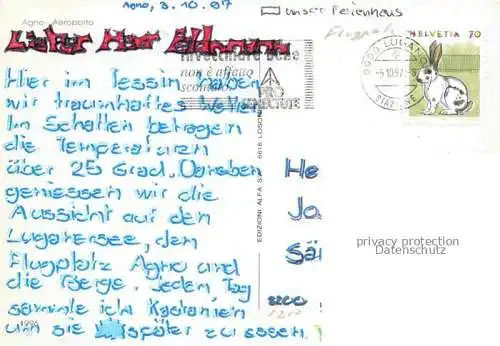 Agno, 3.10.97
unser Ferienhaus
Flugpl
Agno - Aeroporto
Lieber Herr
HELVETIA 70
6900 LUGANO
-5.10.97
STAZIONE
invecchiare bene
non è affatto
scontato
PRO
SENECTUTE
Hier im Tessin haben
wir traumhaftes Wetter.
Im Schatten betragen
die Temperaturen
über 25 Grad. Daneben
geniessen wir die
Aussicht auf den
Luganersee, den
Flugplatz Agno und
die Berge. Jeden Tag
sammle ich Kastanien
um sie später zu essen.
1996
EDIZIONI ALFA S.A. 6616 LOSONE
He
Jo
Sä
8200
privacy protection
Datenschutz